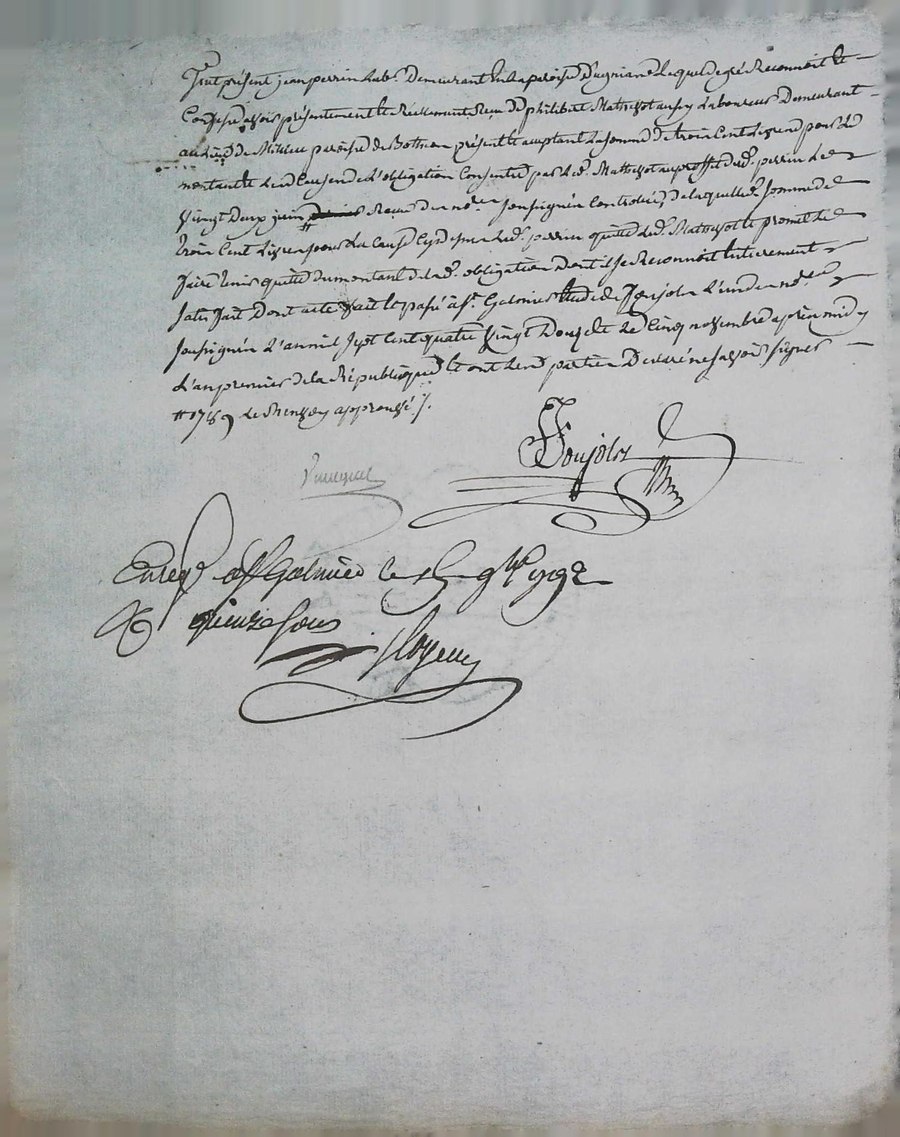 Fut présent jean perrin Lab.r Demeurant En La paroisse D'aveiziand Lequel de gré Reconnoit Et
Confesse avoir présentement Et Réellement Reçu De philibert Mathevot aussy Laboureur Demeurant
au Lieu de paroisse de présent Et acceptant La somme De trois Cent Livres pour Le
montant Et Les Causes de L'obligation Consentie par Led. Mathevot au proffit dud. perrin Le
Vingt Deux juin # Reçue Des no.res soussignés Controllée De laquelle somme de
trois Cent Livres pour La Cause Cy dessus Led. perrin quitte Led. Mathevot Et promet Le
faire tenir quitte Du montant De lad. obligation Dont il se Reconnoit Entierement
satisfait Dont acte fait Et passé à S.t Galmier Etude De Joujolon L'un des no.res
soussignés L'an mil sept Cent quatre Vingt Douze Et Le Cinq novembre après midy
L'an premier de la République Et ont Lesd. parties Déclaré ne savoir signer
# 1789 Le Renvoy approuvé ./.
Enreg.é a S.t Galmier le 15 9bre 1792
R quinze sous